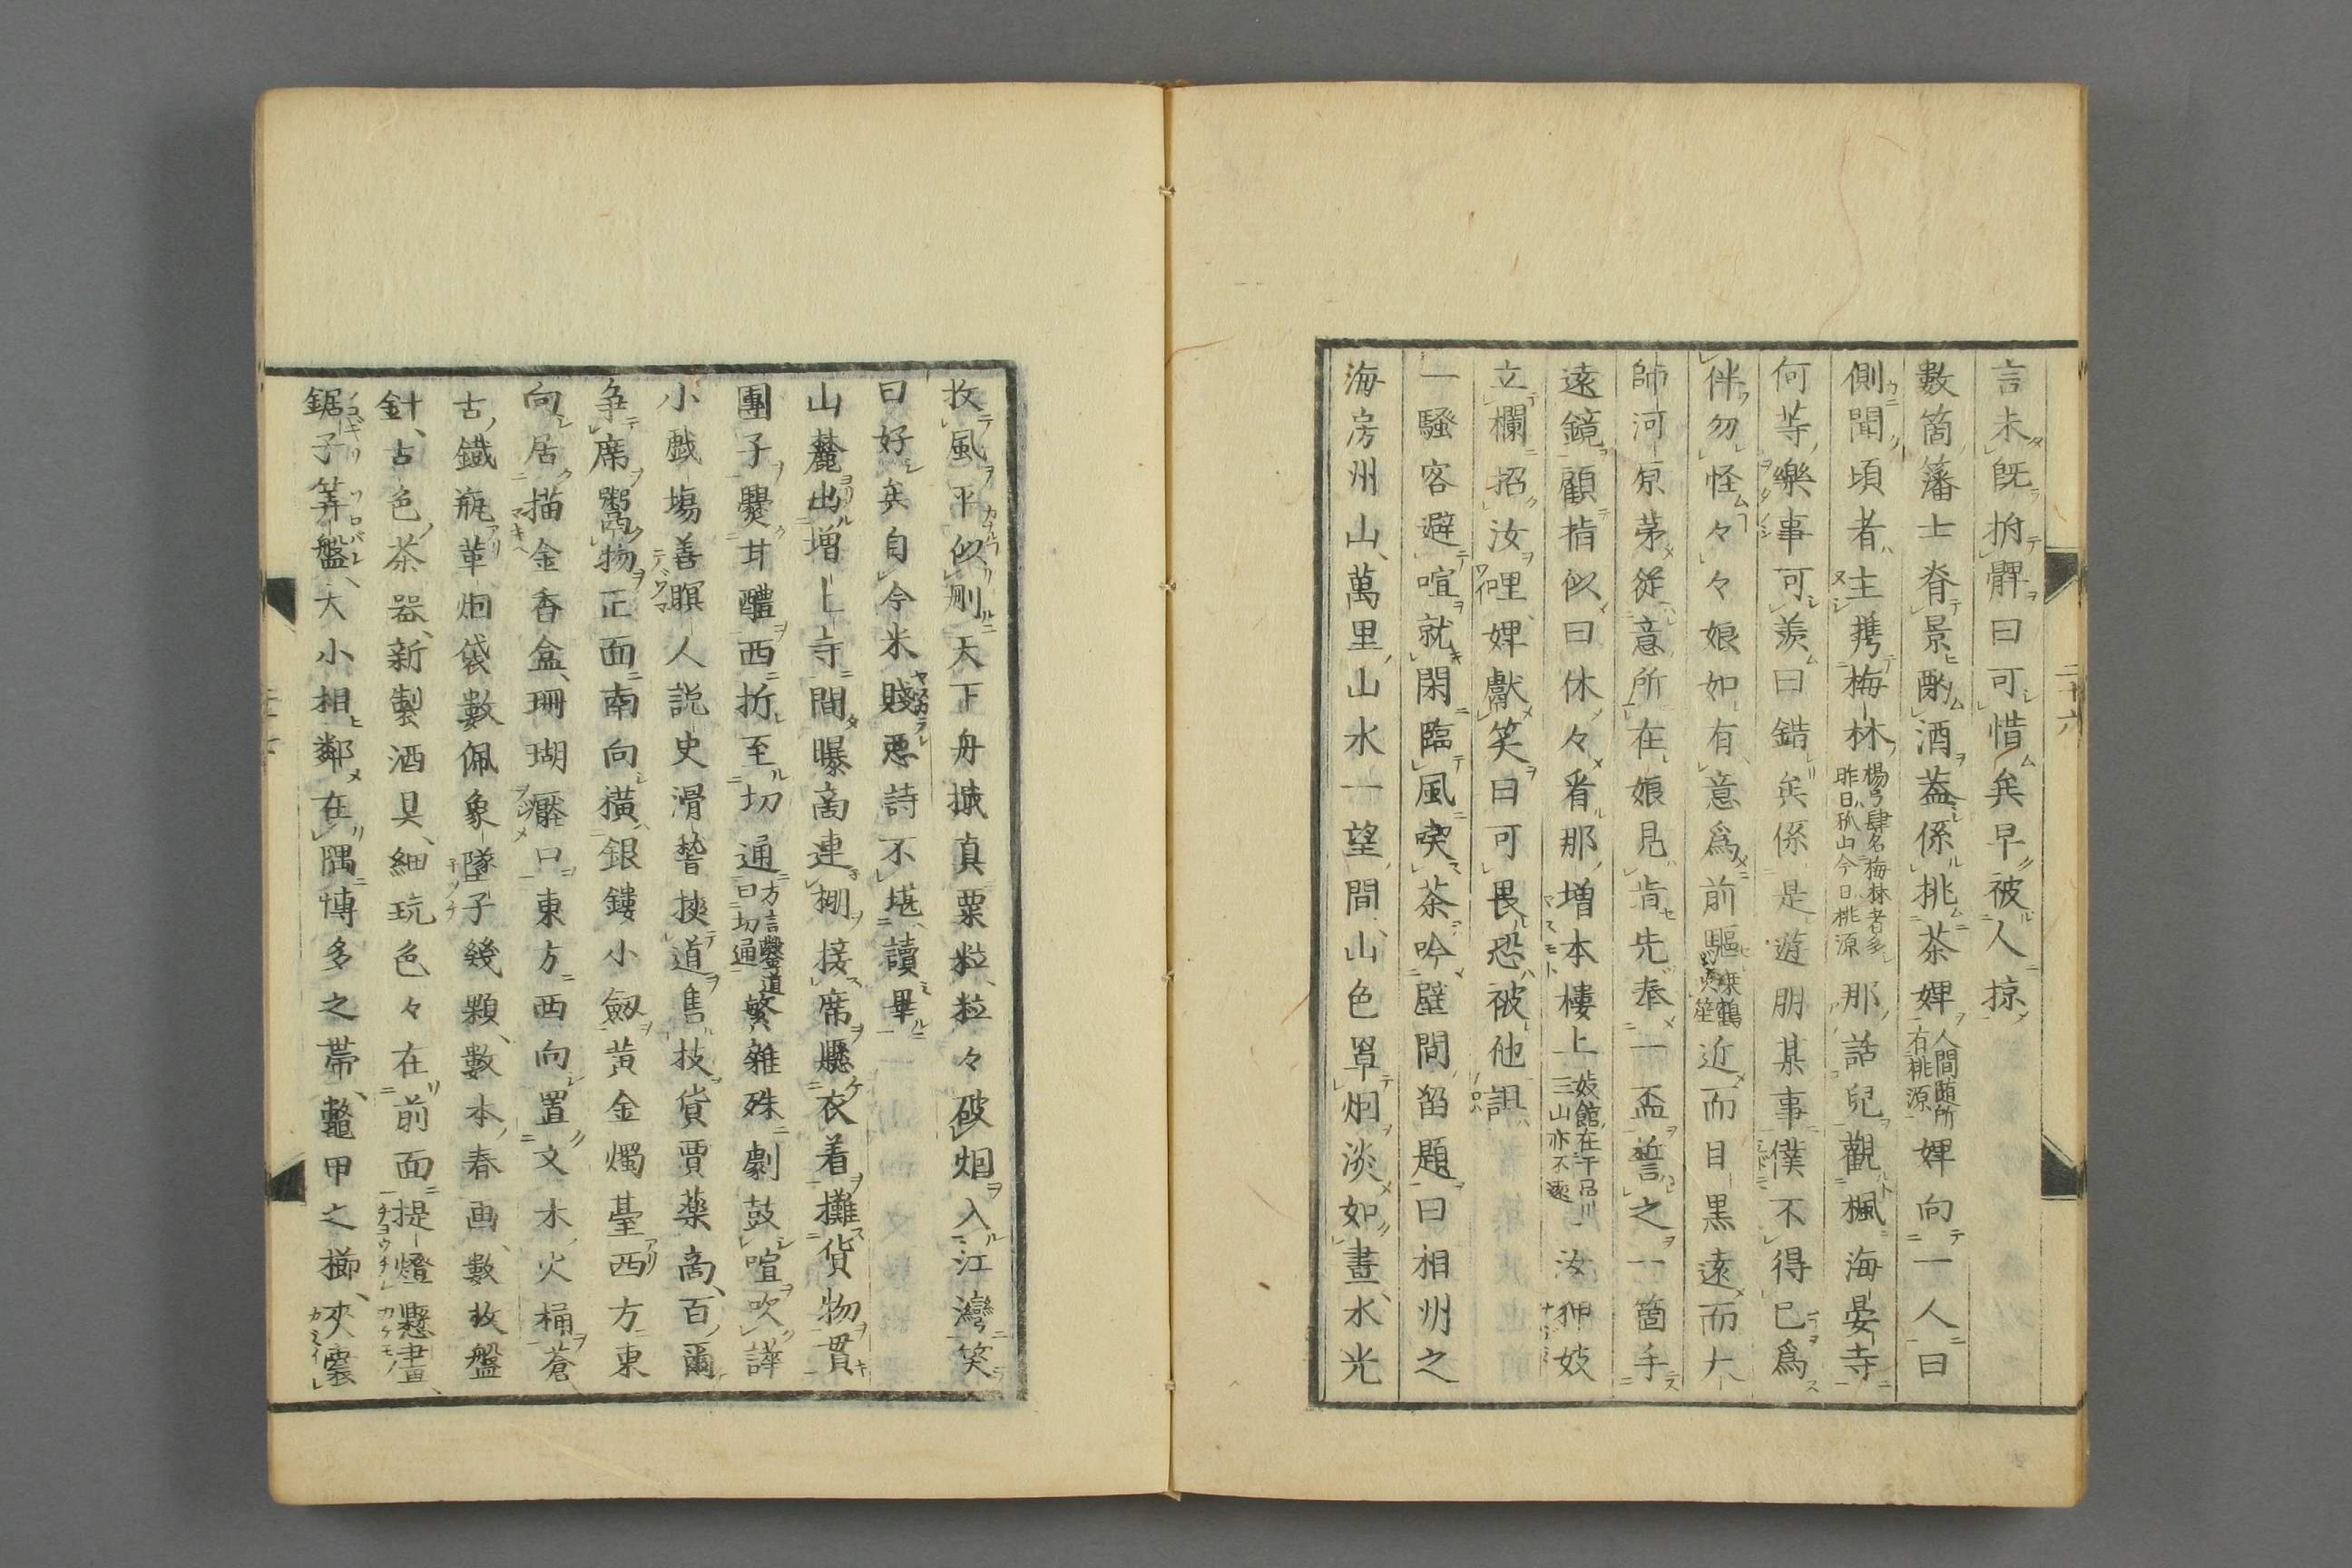 言未既拊髀曰可惜矣早被人掠
數箇藩士眷景酌酒蓋係挑茶婢人間随所右桃源婢向一人曰
側聞頃者主携梅林楊弓肆名梅林者多昨日孤山今日桃源那話兒觀楓海晏寺
何等樂事可羨曰錯矣係是遊朋某事僕不得已爲
伴勿怪々々娘如有意爲前驅乘鶴近而目黒遠而大
師河原苐從意所在娘見肯先奉一盃誓之一箇手
遠鏡顧指似曰休々看那増本樓上妓館在干呂川一三山亦不遠汝狎妓
立欄招汝哩婢獻笑曰可畏恐被他詛
一騷客避喧就閑臨風喫茶吟壁間留題曰相州之
海房州山萬里山水一望間山色罩烟淡如畫水光
二十六
收風平似刪天下舟檝真粟粒粒々破烟入江灣笑
曰好矣自今米賤惡詩不堪讀畢
山麓出増上寺間曝啇連棚接席懸衣着攤貨物貫
團子爨甘醴西折至切通方言鑿道曰切通繁雜殊劇鼓喧吹譁
小戯塲善瞑人説史滑䜏挾道售技貨賈藥啇百爾
争席鬻物正面南向横銀鏤小劔黄金燭臺西方東
向居描金香盒珊瑚癦口東方西向置文木火桶蒼
古鐵瓶革烟袋數佩象墜子幾顆數本春画數枚盤
針古色茶器新製酒具細玩色々在前面提燈懸畫
鋸子筭盤大小相鄰在隅博多之帶鼈甲之櫛夾囊